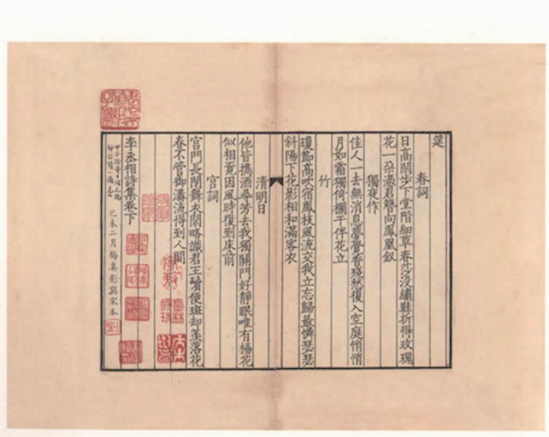 筵
春詞
日高閒步下堂階細草春莎沒繡鞋折得玫瑰
花一朵凭君簪向鳳凰釵
獨夜作
佳人一去無消息夢覺香殘愁復入空庭悄悄
月如霜獨倚欄干伴花立
竹
瓊節高吹宿鳳枝風流交我立忘歸最憐瑟瑟
斜陽下花影相和滿客衣
清明日
他皆攜酒尋芳去我獨關門好靜眠唯有楊花
似相覓因風時復到床前
宮詞
宮門長閉舞衣閒略識君王鬢便斑却羡落花
春不管御溝流得到人間
李丞相詩集卷下
己未二月